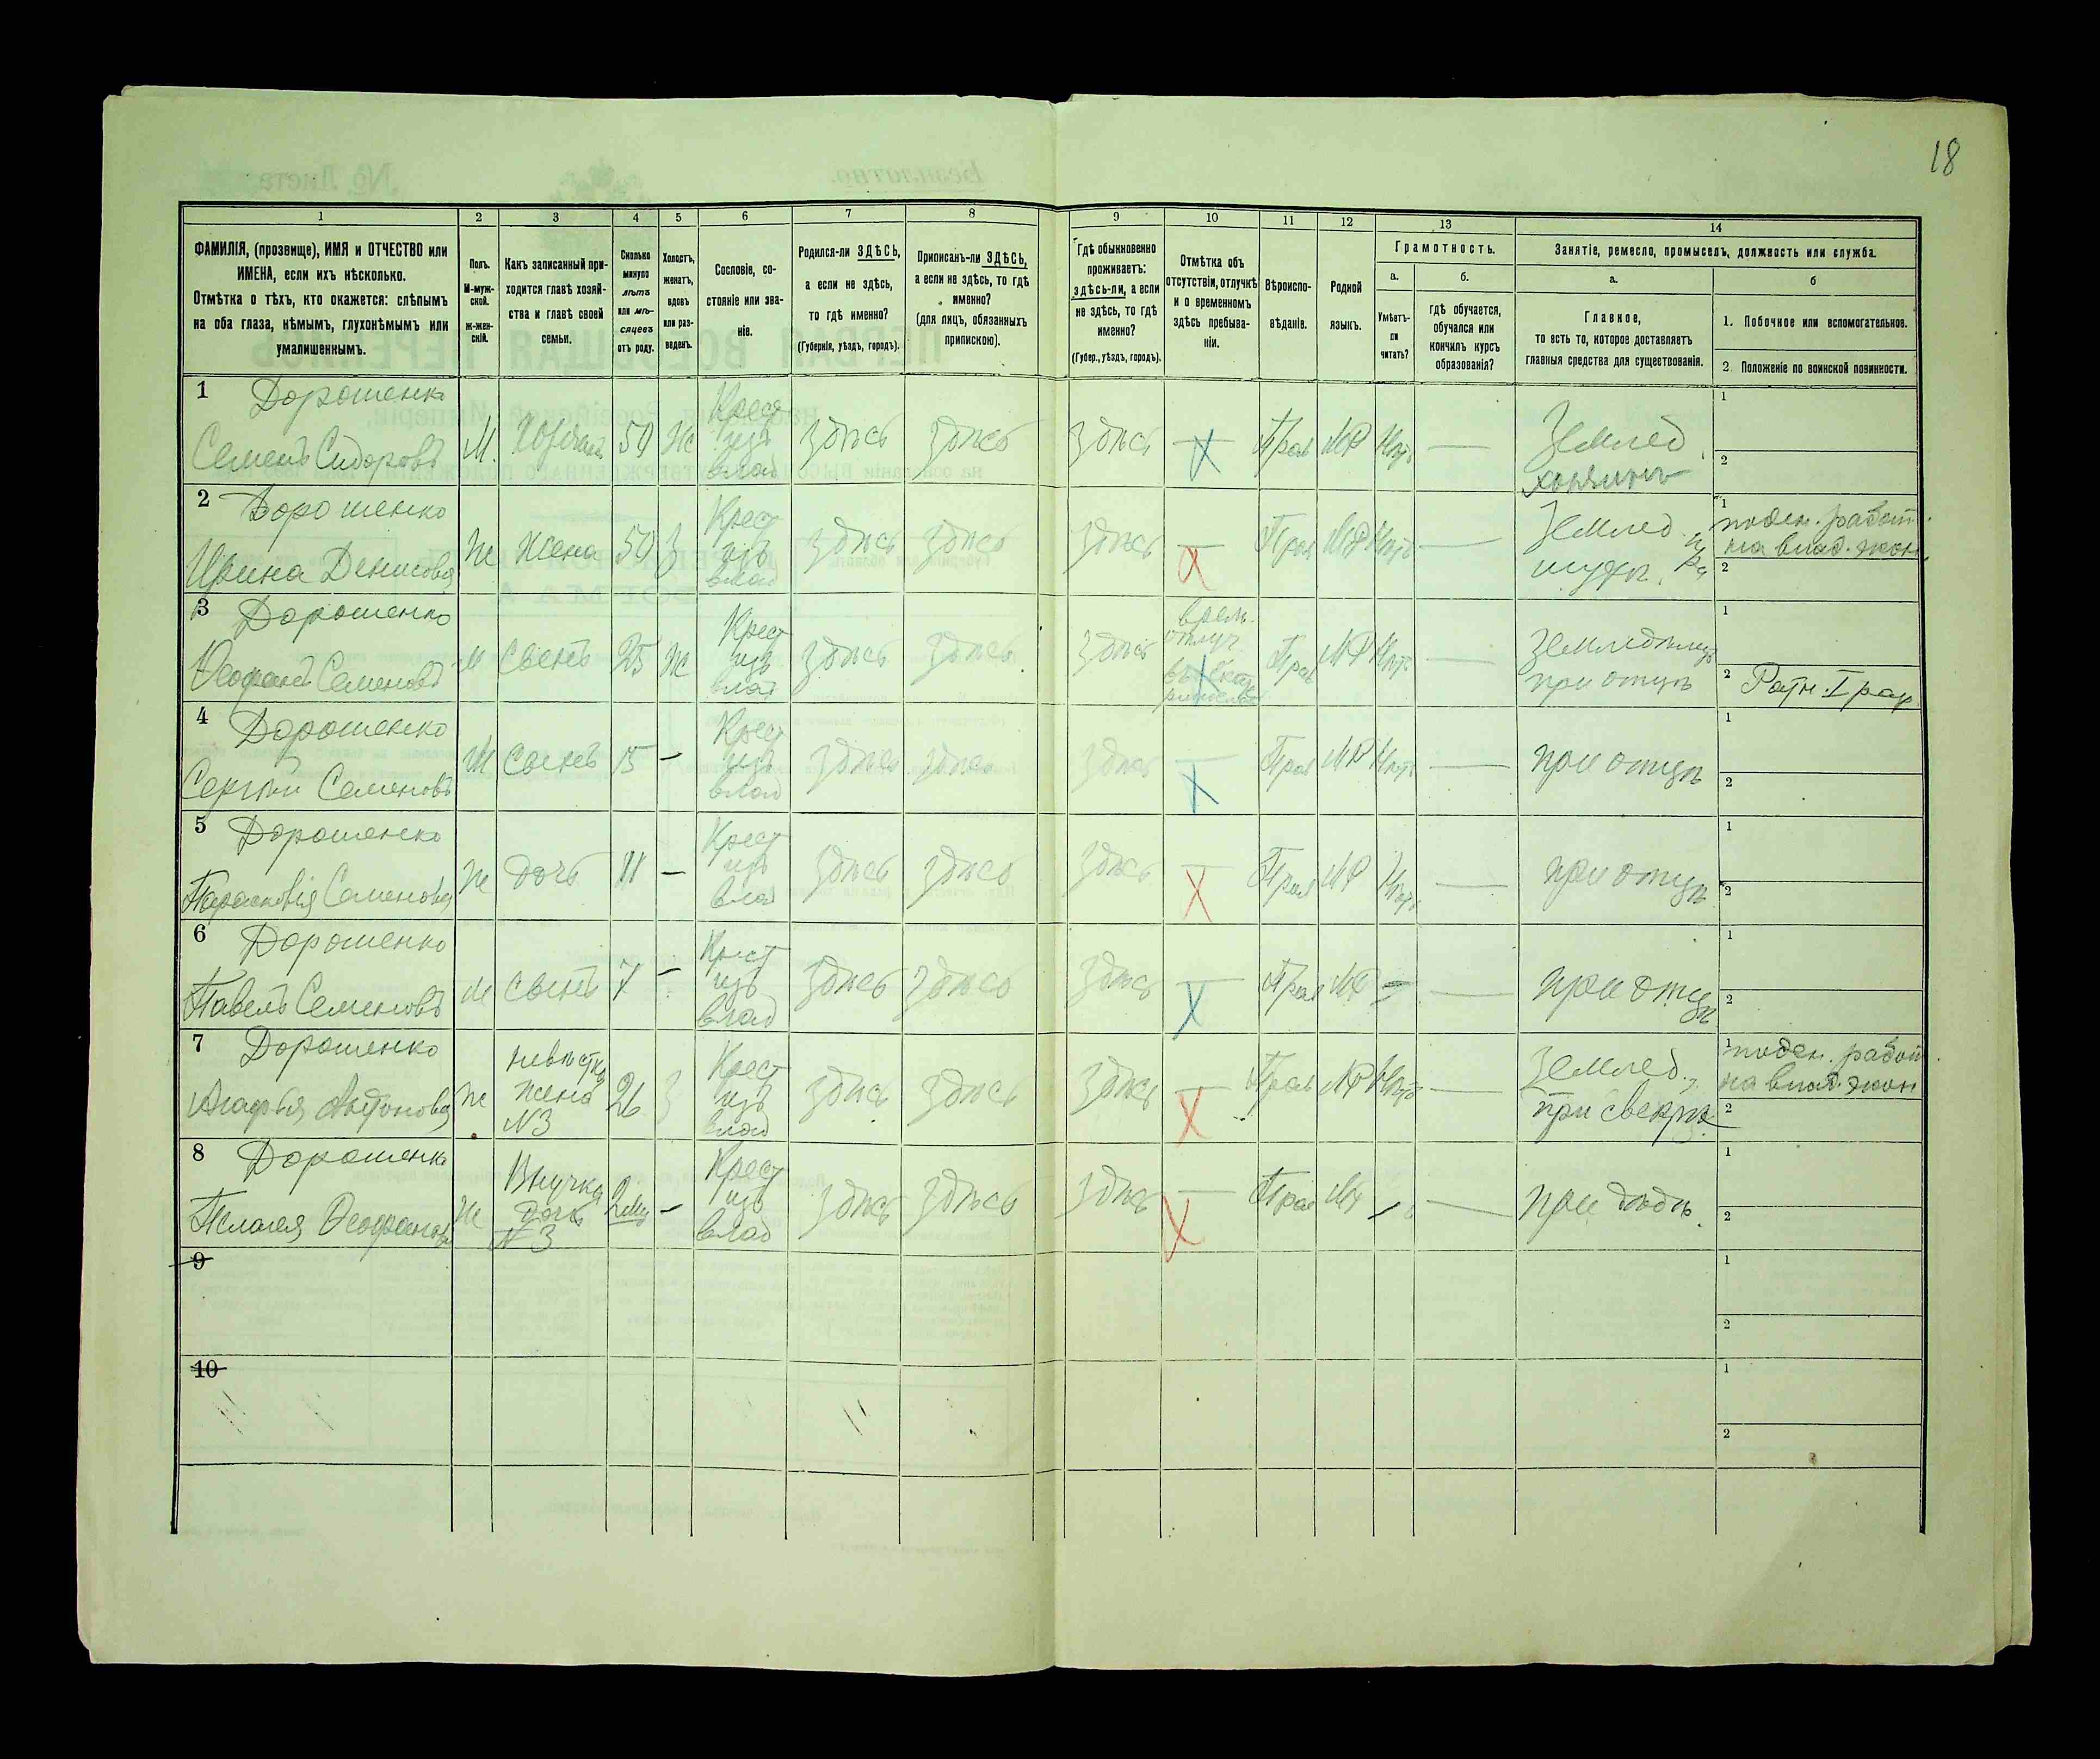 18
1
2
3
4
5
6
7
8
9
10
11
12
13
14
ФАМИЛІЯ, (прозвище), ИМЯ и ОТЧЕСТВО или
ИМЕНА, если ихъ нѣсколько.
Отмѣтка о тѣхъ, кто окажется: слѣпымъ
на оба глаза, нѣмымъ, глухонѣмымъ или
умалишеннымъ.
Полъ.
М-муж-
ской.
Ж-жен-
скій.
Какъ записанный при-
ходится главѣ хозяй-
ства и главѣ своей
семьи.
Сколько
минуло
лѣтъ
или мѣ-
сяцевъ
отъ роду.
Холостъ,
женатъ,
вдовъ
или раз-
веденъ.
Сословіе, со-
стояніе или зва-
ніе.
Родился-ли ЗДѢСЬ,
а если не здѣсь,
то гдѣ именно?
(Губернія, уѣздъ, городъ).
Приписанъ-ли ЗДѢСЬ,
а если не здѣсь, то гдѣ
именно?
(для лицъ, обязанныхъ
припискою).
Гдѣ обыкновенно
проживаетъ:
здѣсь-ли, а если
не здѣсь, то гдѣ
именно?
(Губер., уѣздъ, городъ).
Отмѣтка объ
отсутствіи, отлучкѣ
и о временномъ
здѣсь пребыва-
ніи.
Вѣроиспо-
вѣданіе.
Родной
языкъ.
Грамотность.
а.
Умѣетъ-
ли
читать?
б.
гдѣ обучается,
обучался или
кончилъ курсъ
образованія?
Занятіе, ремесло, промыселъ, должность или служба.
а.
Главное,
то есть то, которое доставляетъ
главныя средства для существованія.
б
1. Побочное или вспомогательное.
2. Положеніе по воинской повинности.
1 Дорошенко
Семенъ Сидоровъ
М. 50 Ж
Крест
изъ
влад
здѣсь здѣсь здѣсь — Прав МР Нѣтъ —
Землед.
хозяинъ
1
2
2 Дорошенко
Ирина Денисова
Ж Жена 50 З
Крест
изъ
влад
здѣсь здѣсь здѣсь — Прав МР Нѣтъ —
Землед
1 поден. работ.
на влад. экон.
2
3 Дорошенко
Феофанъ Семеновъ
М Сынъ 25 Ж
Крест
изъ
влад
здѣсь здѣсь здѣсь
врем.
отлуч
Прав МР Нѣтъ —
Земледѣлецъ
при отцѣ
1
2 Ратн. I раз.
4 Дорошенко
Сергѣй Семеновъ
М Сынъ 15 —
Крест
изъ
влад
здѣсь здѣсь здѣсь — Прав МР Нѣтъ —
при отцѣ
1
2
5 Дорошенко
Парасковія Семенова
Ж дочь 11 —
Крест
изъ
влад
здѣсь здѣсь здѣсь — Прав МР Нѣтъ —
при отцѣ
1
2
6 Дорошенко
Павелъ Семеновъ
М Сынъ 7 —
Крест
изъ
влад
здѣсь здѣсь здѣсь — Прав МР — —
при отцѣ
1
2
7 Дорошенко
Агафья Антонова
Ж
невѣстка
жена
N3
26 З
Крест
изъ
влад
здѣсь здѣсь здѣсь — Прав МР Нѣтъ —
Землед.
при свекрѣ
1 поден. работ.
на влад. экон
2
8 Дорошенко
Пелагея Феофанова
Ж
Внучка
дочь
N 3
2 мѣс —
Крест
изъ
влад
здѣсь здѣсь здѣсь — Прав МР — —
при дѣдѣ.
1
2
9
1
2
10
1
2